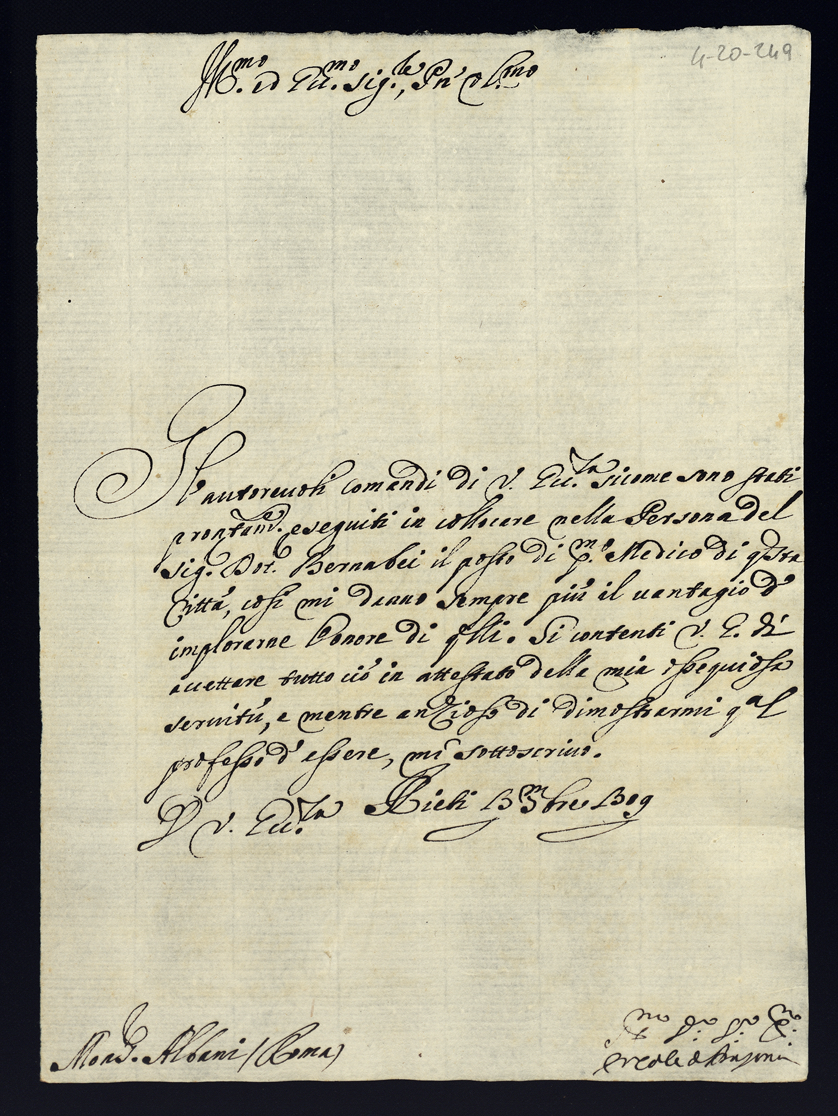 4-20-249
Ill.mo ed Ecc.mo Sig.re, Pn' Col.mo
Gl' autorevoli comandi di V. Ecc.za sicome sono stati
prontam.e eseguiti in collocare nella Persona del
Sig. Dot. Bernabei il posto di P.mo Medico di q'sta
Città, così mi danno sempre più il vantagio d'
implorarne l'onore di q'lli. Si contenti V. E. di
accettare tutto ciò in attestato della mia ossequiosa
servitù, e mentre anzioso di dimostrarmi q'al
professo d' essere, mi sottoscrivo.
D V. Ecc.za Rieti
Mons. Albani (Roma)
Ercole